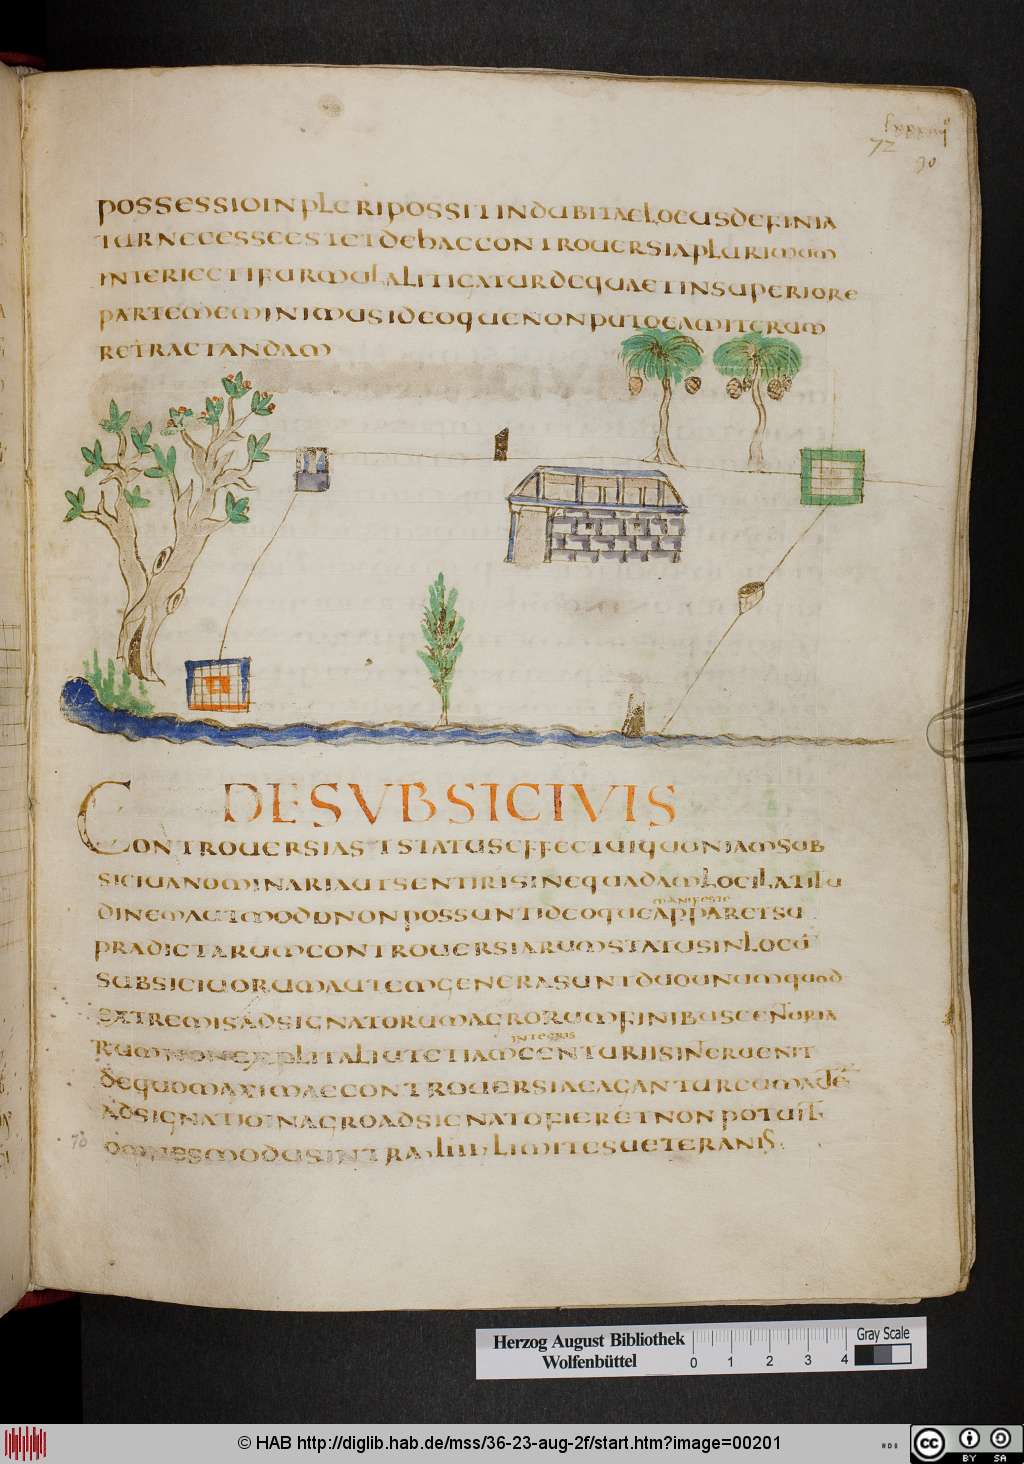 72
90
POSSESSIOINPLERIPOSSITINDUBITAELOCUSDEFINIA
TURNECESSEESTETDEHACCONTROUERSIAPLURIMUM
INTERIECTI LITIGATURDEQUAETINSUPERIORE
PARTEMEMINIMUSIDEOQUENONPUTOEAMITERUM
RETRACTANDAM
DESVBSICIVIS
CONTROUERSIAS TSTATUSEFFECTUIQUONIAMSUB
SICIUANOMINARIAUTSENTIRISINEQUADAMLOCILATITU
manifeste
DINEMAUTMODONONPOSSUNTIDEOQUEAPPARETSU
PRADICTARUMCONTROUERSIARUMSTATUSINLOCU
SUBSICIUORUMAUTEMGENERASUNTDUOUNUMQUOD
EXTREMISADSIGNATORUMAGRORUMFINIBUSCENTURIA
integris
RUMNONEXPLITALIUTETIAMCENTURIISINTERUENIT
DEQUOMAXIMAECONTROUERSIAEAGANTURCUMADE
ADSIGNATIOINAGROADSIGNATOFIERETNONPOTUIT
OMNESMODUSINTRA IIII LIMITESUETERANIS
Herzog August Bibliothek
Wolfenbüttel
0 1 2 3 4
Gray Scale
© HAB http://diglib.hab.de/mss/36-23-aug-2f/start.htm?image=00201
cc BY SA